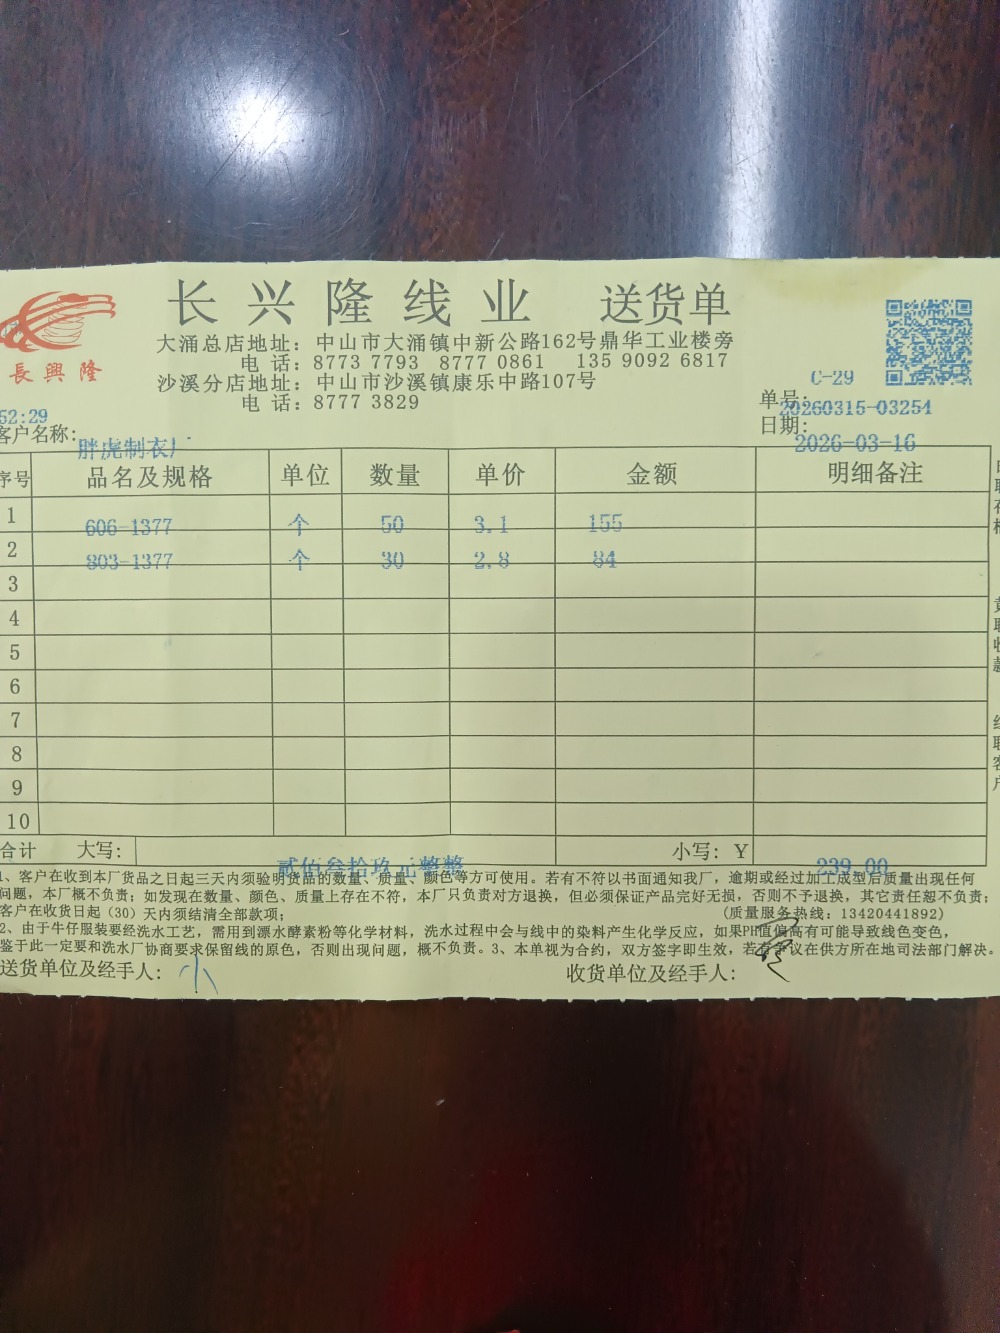 长兴隆线业 送货单
長興隆
大涌总店地址：中山市大涌镇中新公路162号鼎华工业楼旁
电 话：8773 7793 8777 0861 135 9092 6817
沙溪分店地址：中山市沙溪镇康乐中路107号
电 话：8777 3829
C-29
单号：20260315-03254
日期：2026-03-16
52:29
客户名称：胖虎制衣厂
序号 品名及规格 单位 数量 单价 金额 明细备注
1 606-1377 个 50 3.1 155
2 803-1377 个 30 2.8 84
3
4
5
6
7
8
9
10
合计 大写： 贰佰叁拾玖元整整 小写：Y 239.00
1、客户在收到本厂货品之日起三天内须验明货品的数量、质量、颜色等方可使用。若有不符以书面通知我厂，逾期或经过加工成型后质量出现任何
问题，本厂概不负责；如发现在数量、颜色、质量上存在不符，本厂只负责对方退换，但必须保证产品完好无损，否则不予退换，其它责任恕不负责；
客户在收货日起（30）天内须结清全部款项； (质量服务热线：13420441892)
2、由于牛仔服装要经洗水工艺，需用到漂水酵素粉等化学材料，洗水过程中会与线中的染料产生化学反应，如果PH值偏高有可能导致线色变色，
鉴于此一定要和洗水厂协商要求保留线的原色，否则出现问题，概不负责。3、本单视为合约，双方签字即生效，若有争议在供方所在地司法部门解决。
送货单位及经手人：小 收货单位及经手人：